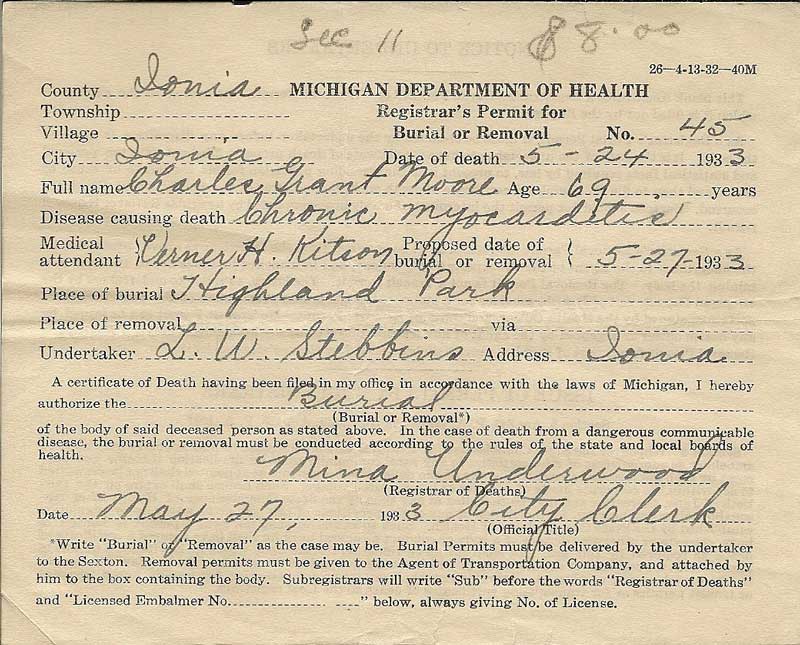 Sec 11 $8.00
26—4-13-32—40M
County Ionia MICHIGAN DEPARTMENT OF HEALTH
Township Registrar's Permit for
Village Burial or Removal No. 45
City Ionia Date of death 5-24 1933
Full name Charles Grant Moore Age 69 years
Disease causing death Chronic myocarditis
Medical attendant Verner H. Kitson Proposed date of burial or removal 5-27-1933
Place of burial Highland Park
Place of removal via
Undertaker L. W. Stebbins Address Ionia
A certificate of Death having been filed in my office in accordance with the laws of Michigan, I hereby
authorize the Burial
(Burial or Removal*)
of the body of said deceased person as stated above. In the case of death from a dangerous communicable
disease, the burial or removal must be conducted according to the rules of the state and local boards of
health.
Mina Underwood
(Registrar of Deaths)
Date May 27, 1933 City Clerk
(Official Title)
*Write "Burial" or "Removal" as the case may be. Burial Permits must be delivered by the undertaker
to the Sexton. Removal permits must be given to the Agent of Transportation Company, and attached by
him to the box containing the body. Subregistrars will write "Sub" before the words "Registrar of Deaths"
and "Licensed Embalmer No. " below, always giving No. of License.